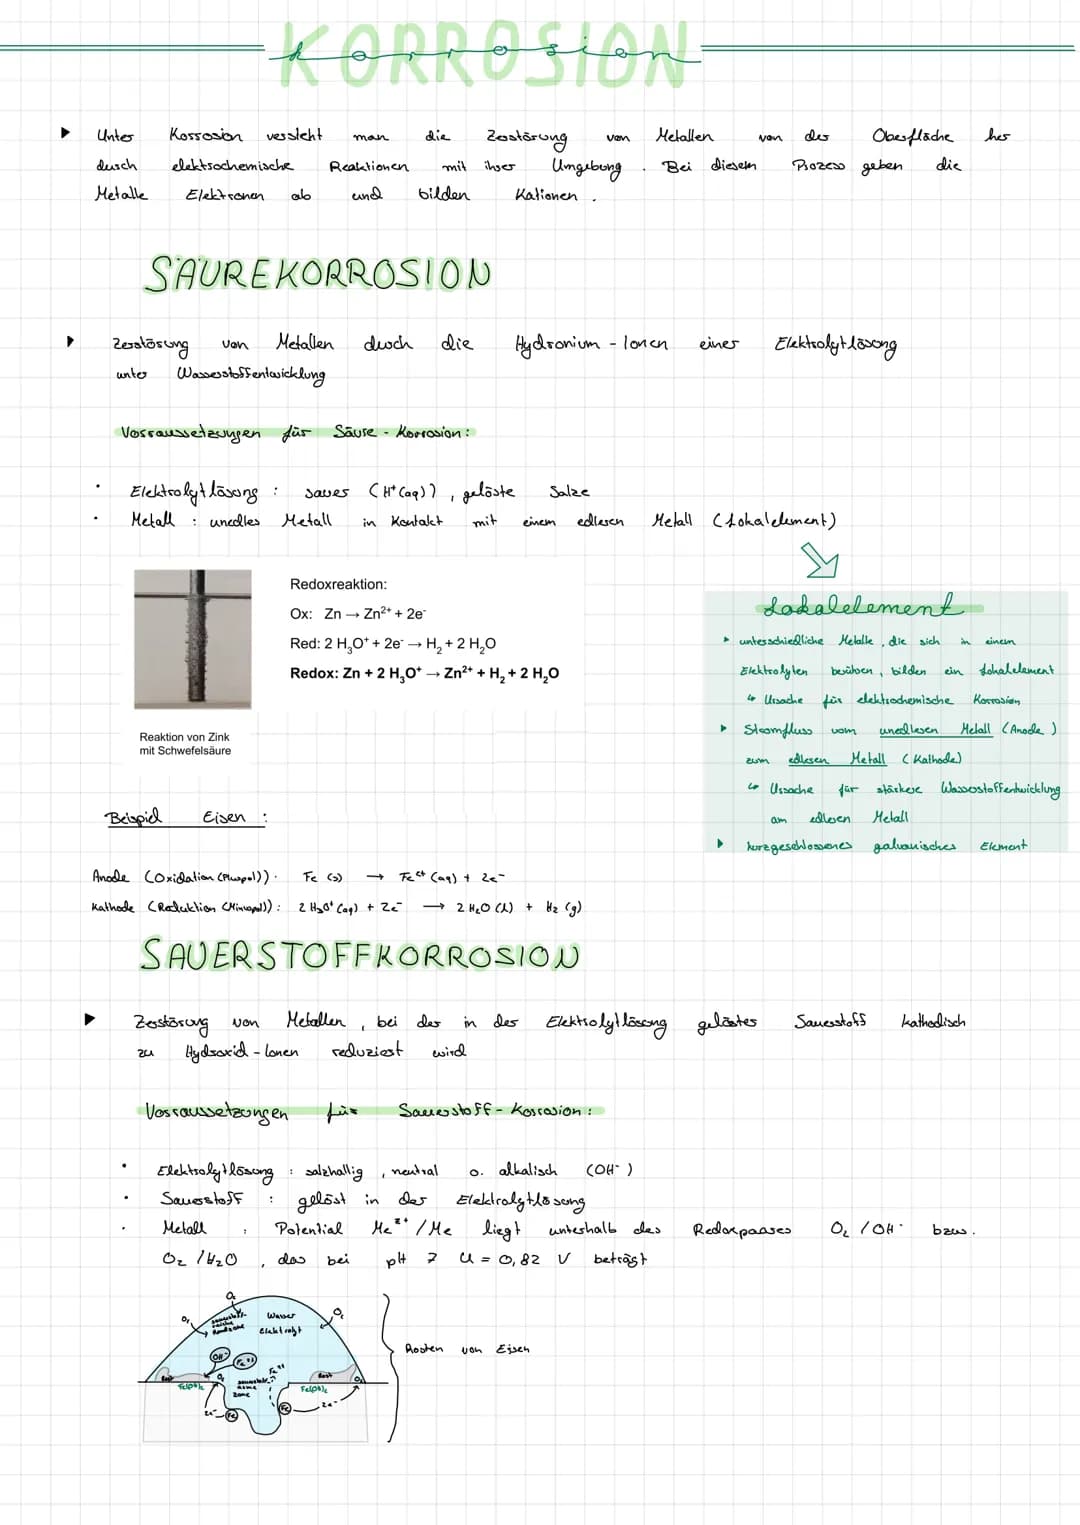 KORROSION
korrosion
Unter Korrosion versteht man die Zerstörung von Metallen von der Oberfläche her
durch elektrochemische Reaktionen mit ihrer Umgebung. Bei diesem Prozess geben die
Metalle Elektronen ab und bilden Kationen.
SÄUREKORROSION
Zerstörung von Metallen durch die Hydronium-Ionen einer Elektrolytlösung
unter Wasserstoffentwicklung
Vorraussetzungen für Säure-Korrosion:
• Elektrolytlösung: saures (H⁺(aq)), gelöste Salze
• Metall: unedles Metall in Kontakt mit einem edleren Metall (Lokalelement)
Redoxreaktion:
Ox: Zn → Zn²⁺ + 2e⁻
Red: 2 H₃O⁺ + 2e⁻ → H₂ + 2 H₂O
Redox: Zn + 2 H₃O⁺ → Zn²⁺ + H₂ + 2 H₂O
Reaktion von Zink
mit Schwefelsäure
Lokalelement
unterschiedliche Metalle, die sich in einem
Elektrolyten berühren, bilden ein Lokalelement
↳ Ursache für elektrochemische Korrosion
Stromfluss vom unedleren Metall (Anode)
zum edleren Metall (Kathode)
↳ Ursache für stärkere Wasserstoffentwicklung
am edleren Metall
kurzgeschlossenes galvanisches Element
Beispiel Eisen:
Anode (Oxidation (Pluspol)): Fe (s) → Fe²⁺ (aq) + 2e⁻
Kathode (Reduktion (Minuspol)): 2 H₃O⁺ (aq) + 2e⁻ → 2 H₂O (l) + H₂ (g)
SAUERSTOFFKORROSION
Zerstörung von Metallen, bei der in der Elektrolytlösung gelöstes Sauerstoff kathodisch
zu Hydroxid-Ionen reduziert wird
Vorraussetzungen für Sauerstoff-Korrosion:
• Elektrolytlösung: salzhaltig, neutral o. alkalisch (OH⁻)
• Sauerstoff: gelöst in der Elektrolytlösung
• Metall: Potential Meᶻ⁺/Me liegt unterhalb des Redoxpaares O₂/OH⁻ bzw.
O₂/H₂O, das bei pH 7 U = 0,82 V beträgt
O₂
O₂
O₂
sauerstoff-
reiche
Randzone
Wasser
Elektrolyt
OH⁻
Fe²⁺
Fe²⁺
Rost
Rost
O₂
O₂
sauerstoff-
arme
Zone
Fe(OH)₂
Fe(OH)₂
2e⁻
Fe
Fe
2e⁻
Rosten von Eisen